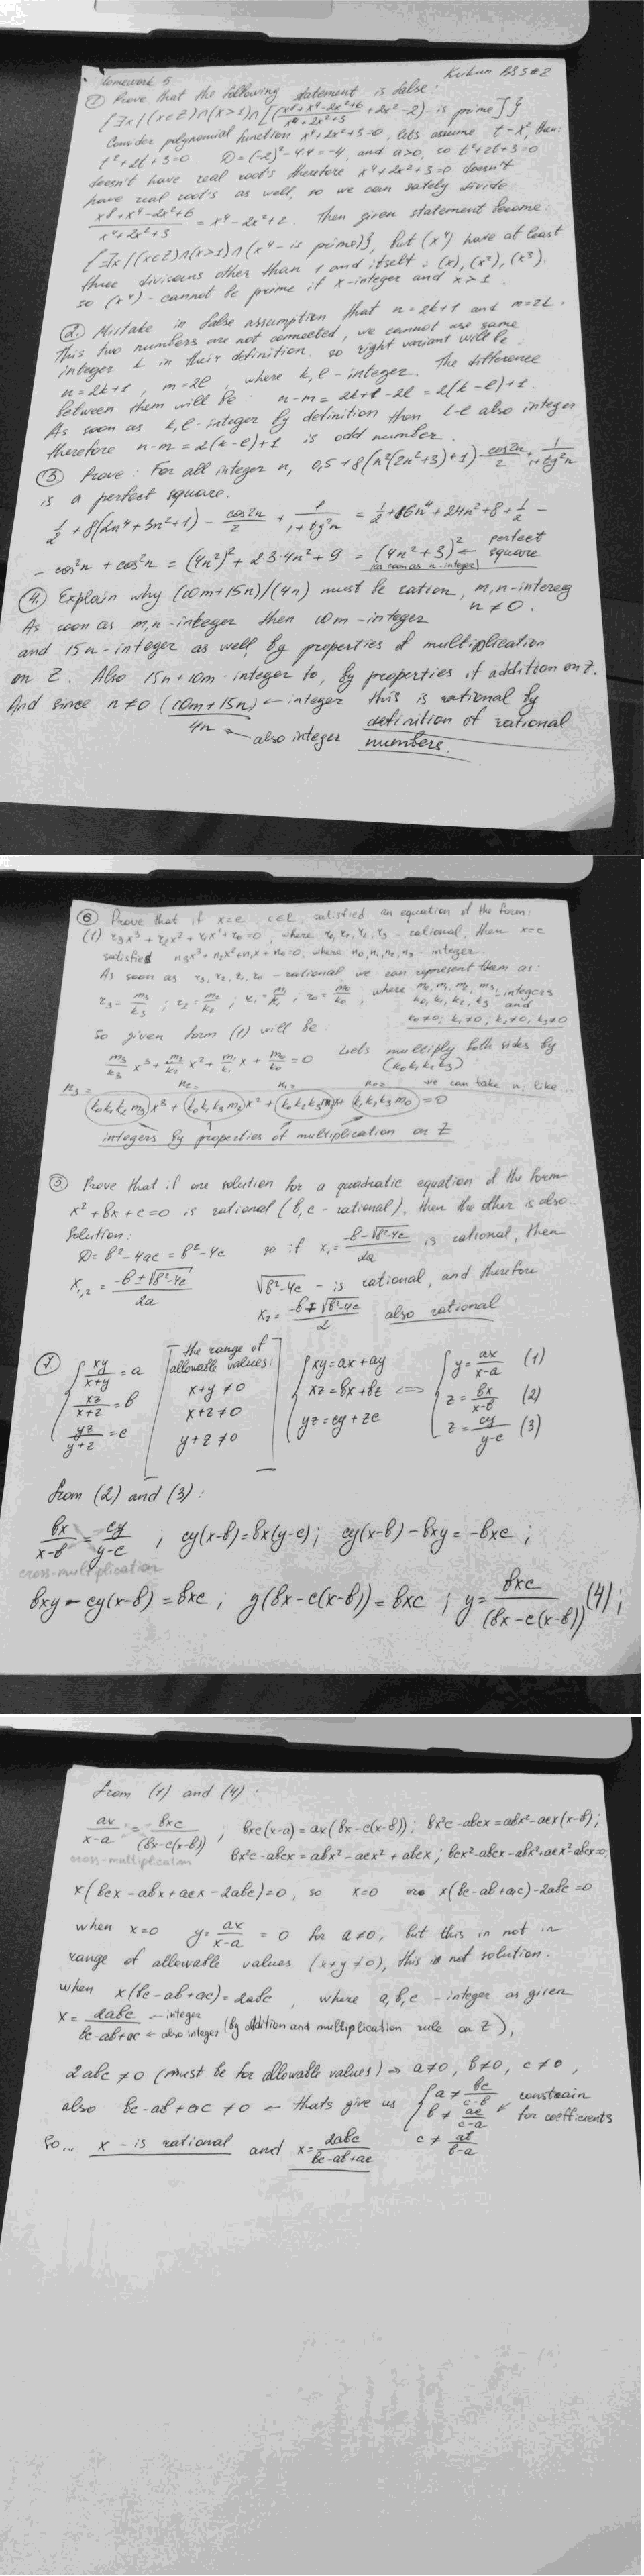 Homework 5
Kuhun BS5#2
① Prove that the following statement is false:
{∃x | (x∈Z)∩(x>1)∩[(x⁸+x⁴-2x²+6 / x⁴+2x²+3 + 2x²-2) - is prime]}
Consider polynomial function x⁴+2x²+3=0, lets assume t=x², then:
t²+2t+3=0 D=(-2)²-4·4=-4, and a>0, so t²+2t+3=0
doesn't have real root's therefore x⁴+2x²+3=0 doesn't
have real root's as well, so we can safely divide
x⁸+x⁴-2x²+6 / x⁴+2x²+3 = x⁴-2x²+2. Then given statement become:
{∃x | (x∈Z)∩(x>1)∩(x⁴ - is prime)}, but (x⁴) have at least
three divisions other than 1 and itself: (x), (x²), (x³).
so (x⁴) - cannot be prime if x-integer and x>1.
② Mistake in false assumption that n=2k+1 and m=2k.
This two numbers are not connected, we cannot use same
integer k in their definition. so right variant will be
n=2k+1, m=2l, where k,l - integer. The difference
between them will be: n-m = 2k+1-2l = 2(k-l)+1.
As soon as k,l-integer by definition then k-l also integer
therefore n-m=2(k-l)+1 is odd number.
③ Prove: For all integer n, 0,5+8(n²(2n²+3)+1)-cos2n/2+1/1+tg²n
is a perfect square.
1/2+8(2n⁴+3n²+1) - cos2n/2 + 1/1+tg²n = 1/2+16n⁴+24n²+8+1/2 -
- cos²n + cos²n = (4n²)²+2·3·4n²+9 = (4n²+3)² ← perfect square
(as soon as n-integer)
④ Explain why (10m+15n)/(4n) must be ration, m,n-intereg
n≠0.
As soon as m,n-integer then 10m-integer
and 15n-integer as well, by properties of multiplication
on Z. Also 15n+10m-integer to, by properties of addition on Z.
And since n≠0 (10m+15n) ← integer this is rational by
4n ← also integer definition of rational
numbers.
⑥ Prove that if x=c, c∈R, satisfied an equation of the form:
(1) r₃x³+r₂x²+r₁x¹+r₀=0, where r₀,r₁,r₂,r₃ - rational, then x=c
satisfied n₃x³+n₂x²+n₁x+n₀=0, where n₀,n₁,n₂,n₃ - integer.
As soon as r₃,r₂,r₁,r₀ - rational we can represent them as:
r₃=m₃/k₃; r₂=m₂/k₂; r₁=m₁/k₁; r₀=m₀/k₀, where m₀,m₁,m₂,m₃, k₀,k₁,k₂,k₃ -integers and
So given form (1) will be: k₀≠0; k₁≠0; k₂≠0, k₃≠0
m₃/k₃ x³ + m₂/k₂ x² + m₁/k₁ x + m₀/k₀ = 0 Lets multiply both sides by (k₀k₁k₂k₃)
n₃= n₂= n₁= n₀= we can take n, like...
(k₀k₁k₂m₃)x³ + (k₀k₁k₃m₂)x² + (k₀k₂k₃m₁)x + (k₁k₂k₃m₀) = 0
integers by properties of multiplication on Z
⑤ Prove that if one solution for a quadratic equation of the form
x²+bx+c=0 is rational (b,c - rational), then the other is also.
Solution:
D=b²-4ac=b²-4c so if x₁=-b-√b²-4c / 2a is rational, then
x₁,₂ = -b±√b²-4c / 2a √b²-4c - is rational, and therefore
x₂=-b+√b²-4c / 2 also rational
⑦ {xy/x+y=a xz/x+z=b yz/y+z=c [the range of allowable values: x+y≠0 x+z≠0 y+z≠0] {xy=ax+ay xz=bx+bz yz=cy+zc <=> {y=ax/x-a (1) z=bx/x-b (2) z=cy/y-c (3)
from (2) and (3):
bx/x-b = cy/y-c; cy(x-b)=bx(y-c); cy(x-b)-bxy=-bxc;
cross-multiplication
bxy-cy(x-b)=bxc; y(bx-c(x-b))=bxc; y=bxc/(bx-c(x-b)) (4);
from (1) and (4):
ax/x-a = bxc/(bx-c(x-b)); bxc(x-a)=ax(bx-c(x-b)); bx²c-abcx=abx²-acx(x-b);
cross-multiplication bx²c-abcx=abx²-acx²+abcx; bcx²-abcx-abx²+acx²-abcx=0;
x(bcx-abx+acx-2abc)=0, so x=0 or x(bc-ab+ac)-2abc=0
when x=0 y=ax/x-a=0 for a≠0, but this in not in
range of allowable values (x+y≠0), this is not solution.
when x(bc-ab+ac)=2abc, where a,b,c - integer as given
x=2abc ← integer
bc-ab+ac ← also integer (by addition and multiplication rule on Z),
2abc≠0 (must be for allowable values) => a≠0, b≠0, c≠0,
also bc-ab+ac≠0 ← thats give us {a≠bc/c-b b≠ac/c-a c≠ab/b-a constrain for coefficients
So... x - is rational and x=2abc/bc-ab+ac